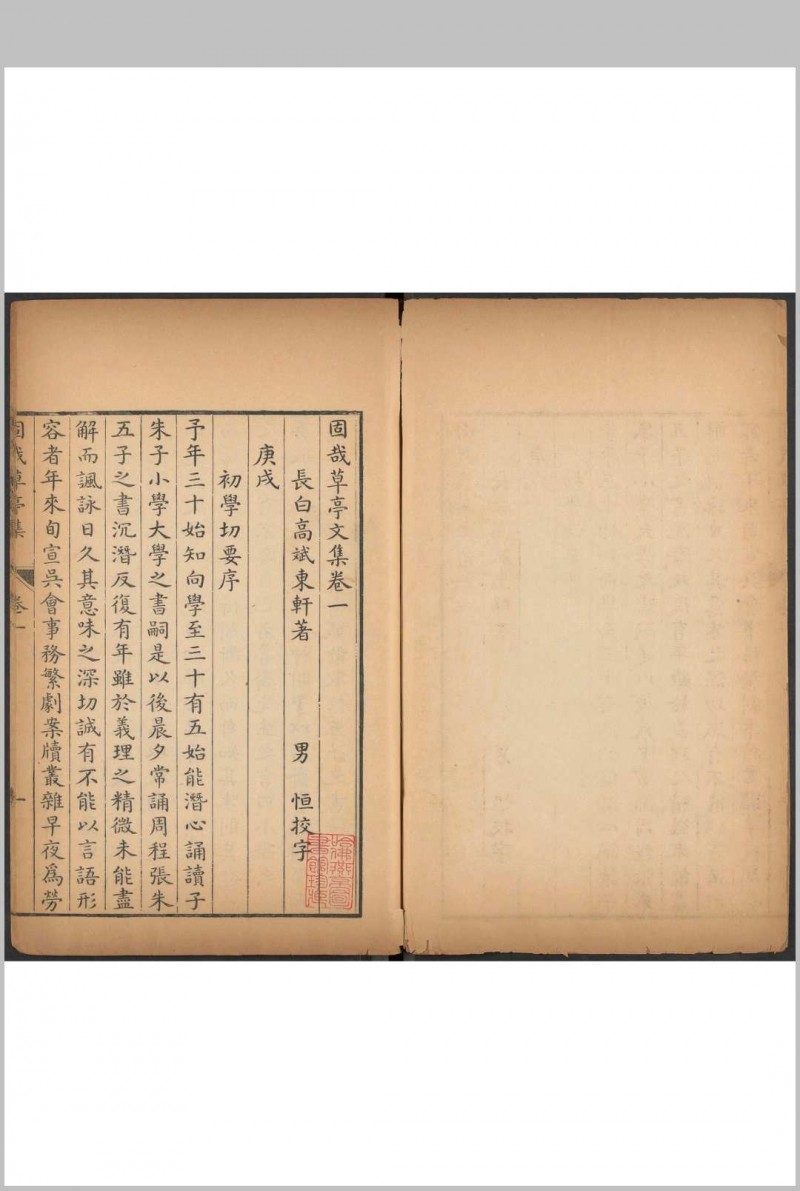 固哉草亭文集卷一
長白高斌東軒著 男 恒挍字
庚戌
初學切要序
予年三十始知向學至三十有五始能潛心誦讀子
朱子小學大學之書嗣是以後晨夕常誦周程張朱
五子之書沉潛反復有年雖於義理之精微未能盡
解而諷詠日久其意味之深切誠有不能以言語形
容者年來旬宣吳會事務繁劇案牘叢雜早夜爲勞
固哉草亭集 卷一 一